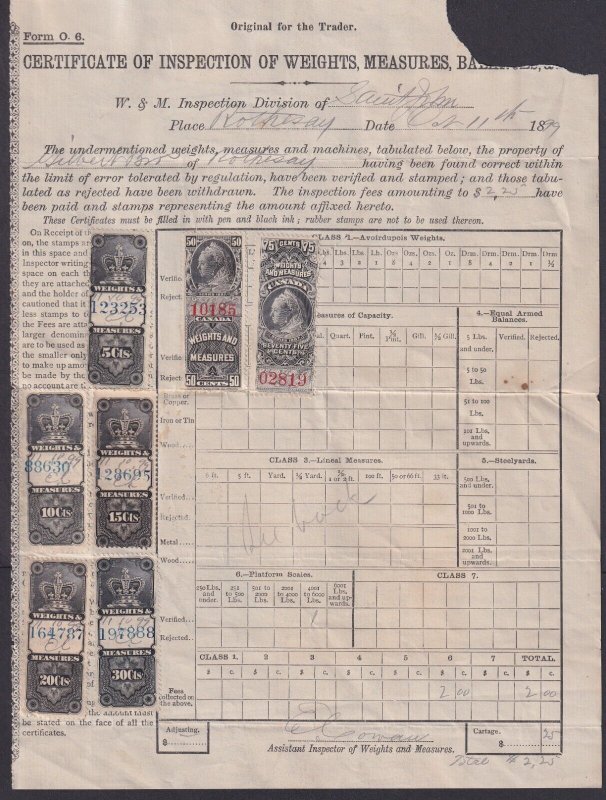 Original for the Trader.
Form O. 6.
CERTIFICATE OF INSPECTION OF WEIGHTS, MEASURES,
W. & M. Inspection Division of Saint John
Place Rothesay Date Oct 11th 1899
The undermentioned weights, measures and machines, tabulated below, the property of
Gilbert Bros of Rothesay having been found correct within
the limit of error tolerated by regulation, have been verified and stamped; and those tabu-
lated as rejected have been withdrawn. The inspection fees amounting to $ 2,25 have
been paid and stamps representing the amount affixed hereto.
These Certificates must be filled in with pen and black ink; rubber stamps are not to be used thereon.
On Receipt of
on, the stamps are
in this space and
Inspector writing
space on each
they are
and the holder of
cautioned that it
less stamps to
the Fees are
larger denomin-
are to be used as
the smaller only
to make up amount
be made by the
no account are the
WEIGHTS &
123253
MEASURES
5Cts
50 50
10185
CANADA
WEIGHTS AND
MEASURES
50 CENTS 50
75 CENTS 75
WEIGHTS AND MEASURES
CANADA
SEVENTY FIVE CENTS
02819
CLASS 1.—Avoirdupois Weights.
Lbs. Lbs. Lbs. Ozs Ozs. Ozs. Ozs. Drm. Drm. Drm. Drm.
4 3 2 1 8 4 2 1 8 4 2 1 ½
Verifie
Reject
Measures of Capacity.
Quart. Pint. ½ Pint. Gill. ½ Gill.
4.—Equal Armed Balances.
Verified. Rejected.
5 Lbs. and under.
5 to 50 Lbs.
51 to 100 Lbs.
101 Lbs. and upwards.
Verifie
Reject
Brass or Copper.
Iron or Tin
Wood
WEIGHTS &
88630
MEASURES
10Cts
WEIGHTS &
128695
MEASURES
15Cts
CLASS 3.—Lineal Measures.
6 ft. 5 ft. Yard. ½ Yard. 1 or 2 ft. 100 ft. 50 or 66 ft. 33 ft.
Verified.
Rejected.
Metal
Wood
5.—Steelyards.
500 Lbs. and under.
501 to 1000 Lbs.
1001 to 2000 Lbs.
2001 Lbs. and upwards.
WEIGHTS &
164787
MEASURES
20Cts
WEIGHTS &
197888
MEASURES
30Cts
6.—Platform Scales.
CLASS 7.
250 Lbs. and under.
251 to 500 Lbs.
501 to 2000 Lbs.
2001 to 4000 Lbs.
4001 to 6000 Lbs.
6001 Lbs. and up-wards.
Verified.
Rejected.
CLASS 1. 2 3 4 5 6 7 TOTAL.
$ c. $ c. $ c. $ c. $ c. $ c. $ c. $ c.
Fees collected on the above. 2 00 2 00
the amount must
be stated on the face of all the
certificates.
Adjusting.
$
Cowan
Assistant Inspector of Weights and Measures.
Cartage.
$ 25
$ 2,25